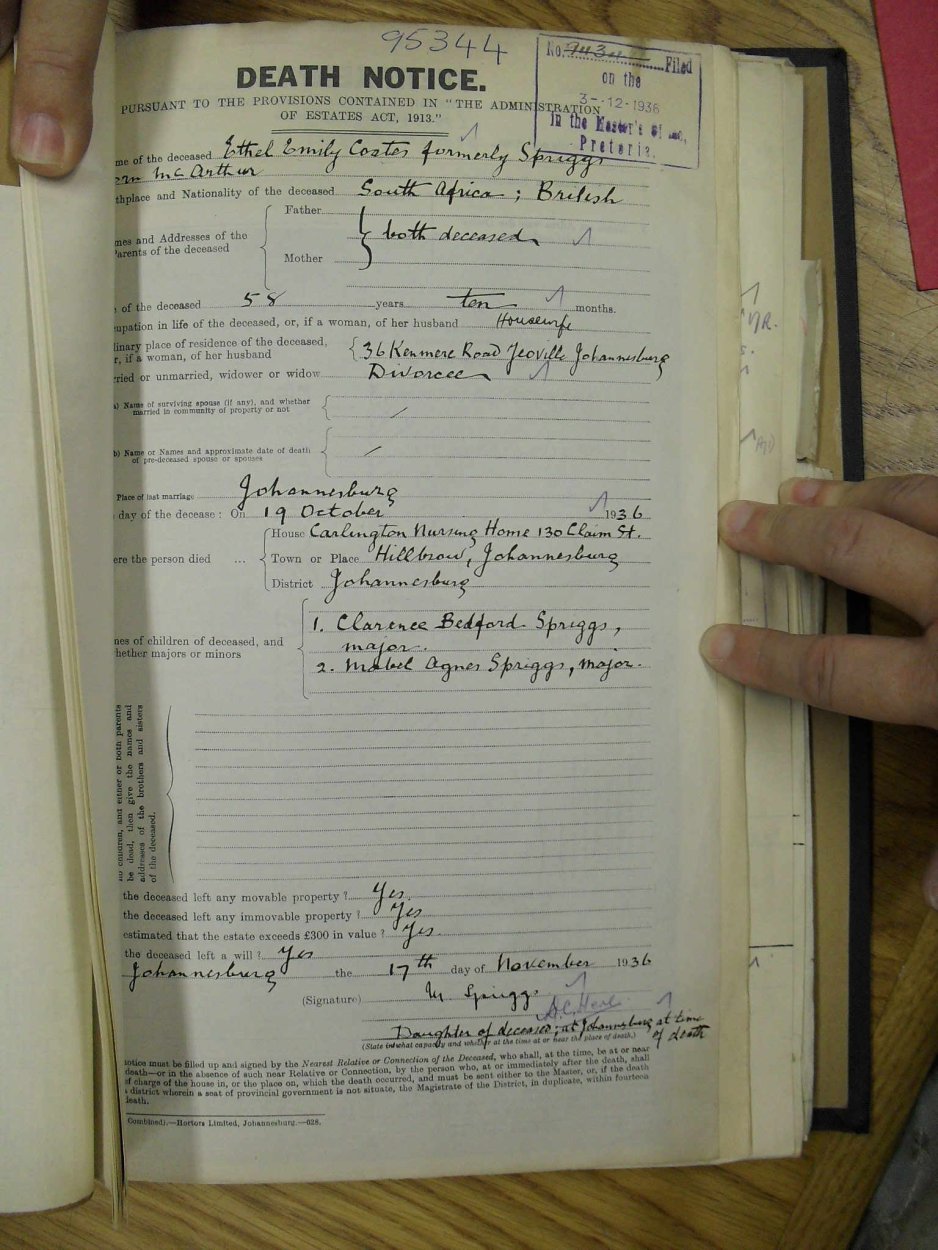 95344
No. 9434 Filed
on the
3--12-1936
In the Master's
Pretoria.
DEATH NOTICE.
PURSUANT TO THE PROVISIONS CONTAINED IN "THE ADMINISTRATION
OF ESTATES ACT, 1913."
me of the deceased Ethel Emily Coates formerly Spriggs
orn McArthur
thplace and Nationality of the deceased South Africa; British
Father
mes and Addresses of the
Parents of the deceased
both deceased
Mother
of the deceased 58 years ten months.
upation in life of the deceased, or, if a woman, of her husband Housewife
dinary place of residence of the deceased,
r, if a woman, of her husband
36 Kenmere Road Yeoville Johannesburg
ried or unmarried, widower or widow Divorcee
a) Name of surviving spouse (if any), and whether
married in community of property or not
b) Name or Names and approximate date of death
of pre-deceased spouse or spouses
Place of last marriage Johannesburg
day of the decease: On 19 October 1936
House Carlington Nursing Home 130 Claim St.
ere the person died ... Town or Place Hillbrow, Johannesburg
District Johannesburg
1. Clarence Bedford Spriggs,
mes of children of deceased, and
hether majors or minors
major.
2. Mabel Agnes Spriggs, major.
no children, and either or both parents
be dead, then give the names and
addresses of the brothers and sisters
of the deceased.
the deceased left any movable property? Yes.
the deceased left any immovable property? Yes
estimated that the estate exceeds £300 in value? Yes.
the deceased left a will? Yes
Johannesburg the 17th day of November 1936
(Signature) M Spriggs
Daughter of deceased; at Johannesburg at time
of death
(State in what capacity and whether at the time at or near the place of death.)
otice must be filled up and signed by the Nearest Relative or Connection of the Deceased, who shall, at the time, be at or near
death—or in the absence of such near Relative or Connection, by the person who, at or immediately after the death, shall
f charge of the house in, or the place on, which the death occurred, and must be sent either to the Master, or, if the death
a district wherein a seat of provincial government is not situate, the Magistrate of the District, in duplicate, within fourteen
death.
Combined).—Hortors Limited, Johannesburg.—628.